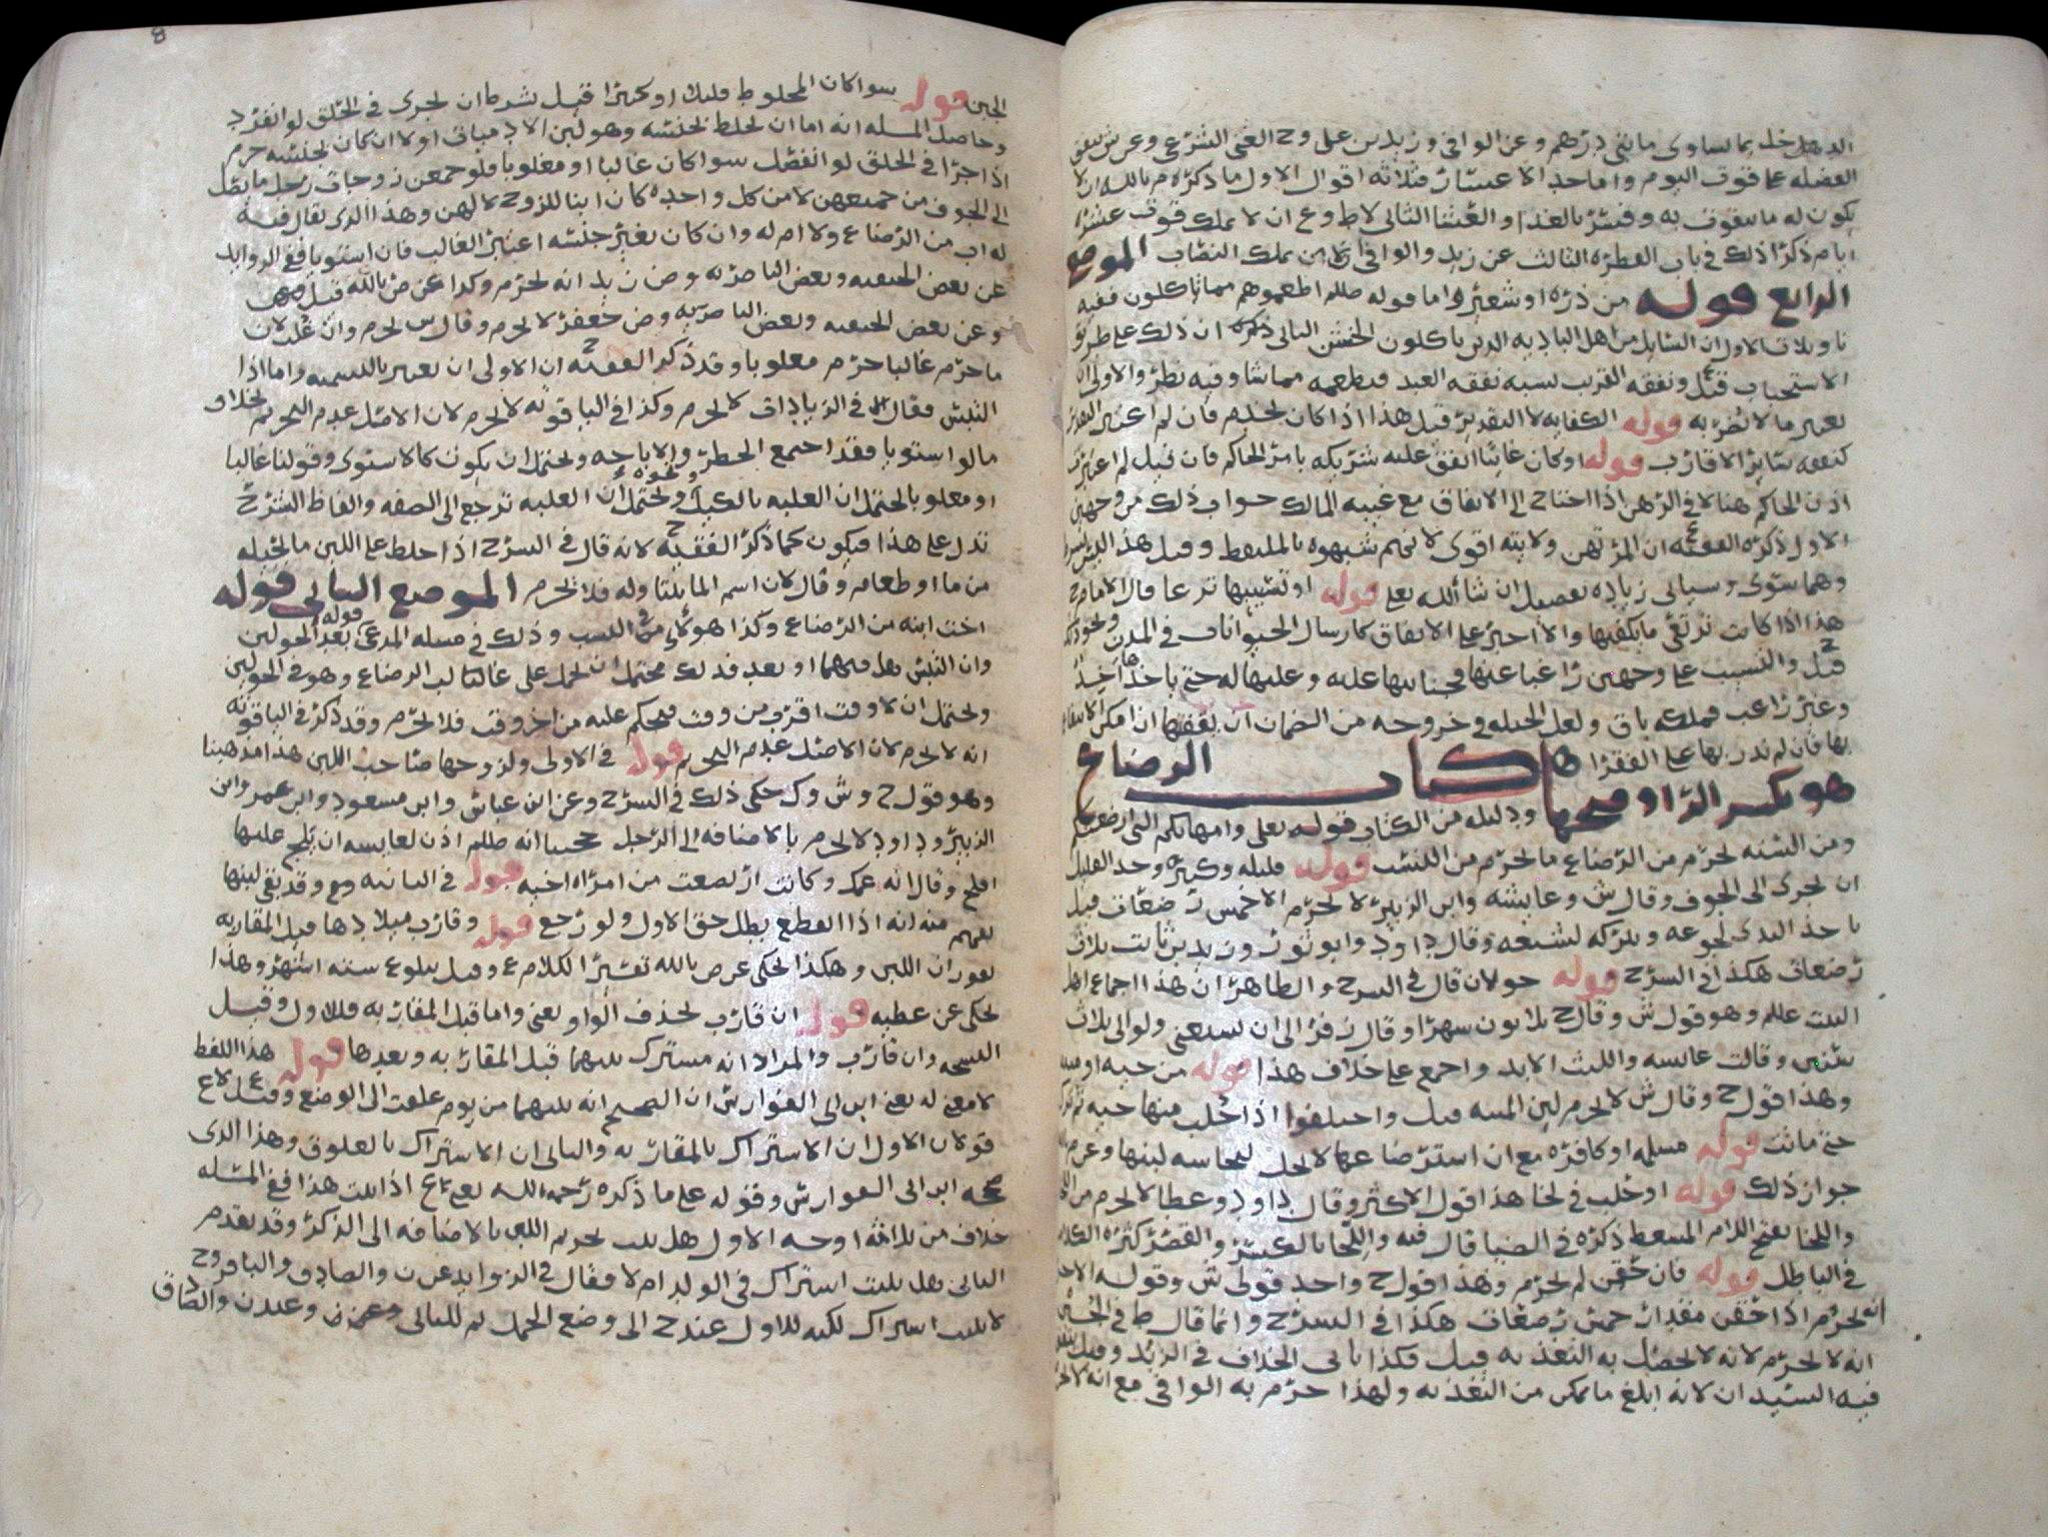 بما يساوى مايتى درهم وعن الوافى وزيد بن على وح الغنى الشرعى
الفضله على قوت اليوم واما حد الاعسار فثلاثه اقوال الاول ما ذكره م بالله ان لا
يكون له ما يتقوت به وفسر بالغدا والعشا الثانى لاط وع ان لا يملك قوت عشره
ايام ذكرا ذلك فى باب الفطره الثالث عن زيد والوافى ان لا يملك النصاب الموضع
الرابع قوله من ذره او شعير واما قوله صللم اطعموهم مما تاكلون ففيه
تاويلات الاول ان السايل من اهل الباديه الذين ياكلون الخشن الثانى ذكره ان ذلك على طريق
الاستحباب قيل ونفقه القريب تشبه نفقه العبد فيطعمه مما شا وفيه نظر والاولى ان
يعتبر ما لا يضر به قوله الكفايه لا التقدير قيل هذا اذا كان يخدم فان لم اعتبر
كنفقه ساير الاقارب قوله وكان غائبا انفق عليه شريكه بامر الحاكم فان قيل لم اعتبر
اذن الحاكم هنا لا فى الرهن اذا احتاج الى الانفاق مع غيبه المالك جواب ذلك من وجهين
الاول ذكره الفقيه ان المرتهن ولايته اقوى لانهم شبهوه بالملتقط وقيل هذا
وهما سوى وسياتى زياده تفصيل ان شا الله تعلى قوله او تسييبها ترعا قال الامام ح
هذا اذا كانت ترتقى ما يكفيها والا اجبر على الانفاق كارسال الحيوانات فى المدن
قيل والتسيب على وجهين راغبا عنها وعليها له حتى ياخذها
وغير راغب فملكه باق ولعل الحيله فى خروجه من الضمان ان يقفها ان امكن
بها فان لم نذر بها على الفقرا كتاب الرضاع
هو بكسر الرا وفتحها ودليله من الكتاب قوله تعلى وامهاتكم التى ارضعنكم
ومن السنه يحرم من الرضاع ما يحرم من النسب قوله قليله وكثيره وحد القليل
ان يجرى الى الجوف وقال ش وعايشه وابن الزبير لا يحرم الا خمس رضعات قيل
ياخذ الثدى لجوعه ويتركه لشبعه وقال داود وابو ثور وزيد بن ثابت بثلاث
رضعات هكذا فى الشرح قوله حولان قال فى الشرح والظاهر ان هذا اجماع اهل
البيت عللم وهو قول ش وقال ح ثلاثون شهرا وقال زفر الى ان يستغنى ولو الى ثلاث
سنين وقالت عايشه والليث الابد واجمع على خلاف هذا قوله من حيه او
وهذا قول ح وقال ش لا يحرم لبن الميته قيل واختلفوا اذا حلب منها حيه ثم
حتى ماتت قوله مسلمه او كافره مع ان استرضاعها لا يحل لنجاسه لبنها وعن
جواز ذلك قوله او حلب فى لخا هذا قول الاكثر وقال داود وعطا لا يحرم من
واللخا بفتح اللام المسعط ذكره فى الضيا قال فيه واللخا بالكسر والقصر كثره الكلام
فى الباطل قوله فان حقن لم يحرم وهذا قول ح واحد قولى ش وقوله
انه يحرم اذا حقن مقدار خمس رضعات هكذا فى الشرح وانما قال ط فى
انه لا يحرم لانه لا يحصل به التغذيه قيل فكذا ياتى الخلاف فى الزبد وقيل
فيه السيدان لانه ابلغ ما يمكن من التغذيه ولهذا حرم به الوافى مع انه
8
الجبن قوله سوا كان المخلوط قليلا او كثيرا قيل بشرط ان يجرى فى الحلق لو انفرد
وحاصل المسله انه اما ان يخلط بجنسه وهو لبن الادميات او لا ان كان بجنسه حرم
اذا جرا فى الحلق لو انفصل سوا كان غالبا او مغلوبا فلو جمع من زوجات رجل ما يصل
الى الجوف من جميعهن لا من كل واحده كان ابنا للزوج لا لهن وهذا الذى يقال فيه
له اب من الرضاع ولا ام له وان كان بغير جنسه اعتبر الغالب فان استويا ففى الزوايد
عن بعض الحنفيه وبعض الناصريه وض زيد انه يحرم وكذا عن ص بالله قيل
وعن بعض الحنفيه وبعض الناصريه وض جعفر لا يحرم وقال ش يحرم وان غلب لان
ما حرم غالبا حرم مغلوبا وقد ذكر الفقيه ح ان الاولى ان يعبر بالتسميه واما اذا
التبس فقال فى الزيادات لا يحرم وكذا فى الياقوته لا يحرم لان الاصل عدم التحريم بخلاف
ما لو استويا فقد اجتمع الحظر والاباحه ويحتمل ان يكون كالاستوى وقولنا غالبا
او مغلوبا يحتمل ان الغلبه بالكيل ونحوه ويحتمل ان الغلبه ترجع الى الصفه والفاظ الشرح
تدل على هذا فيكون كما ذكر الفقيه ح لانه قال فى الشرح اذا خلط على اللبن ما يحيله
من ما او طعام وقال لان اسم الما يتناوله فلا يحرم الموضع الثانى قوله
اخت ابنه من الرضاع وكذا هولاى من النسب وذلك فى مسله المدعى قوله بعد الحولين
وان التبس هل فيهما او بعد فذلك محتمل ان يحمل على غالب الرضاع وهو فى الحولين
ويحتمل ان لا وقت اقرب من وقت فيحكم عليه من اخر وقت فلا يحرم وقد ذكر فى الياقوته
انه لا يحرم لان الاصل عدم التحريم قوله فى الاولى ولزوجها صاحب اللبن هذا مذهبنا
وهو قول ح وش وك حكى ذلك فى الشرح وعن ابن عباس وابن مسعود وابن عمر وابن
الزبير وداود لا يحرم بالاضافه الى الرجل حجتنا انه صللم اذن لعايشه ان يلج عليها
افلح وقال انه عمك وكانت ارتضعت من امراه اخيه قوله فى الثانيه وع وقد بقى لبنها
يفهم منه انه اذا انقطع بطل حق الاول ولو رجع قوله وقارب ميلادها قيل المقاربه
بفوران اللبن وهكذا يحكى عن ص بالله تفسيرا لكلام ع وقيل ببلوغ سته اشهر وهذا
يحكى عن عطيه قوله ان قارب بحذف الواو يعنى واما قبل المقاربه فللاول وقيل
النسخه وان قارب والمراد انه مشترك بينهما قبل المقاربه وبعدها قوله هذا اللفظ
لا معنى له يعنى ابن ابى الفوارس ان الصحيح انه بينهما من يوم علقت الى الوضع وقيل لاع
قولان الاول ان الاشتراك بالمقاربه والثانى ان الاشتراك بالعلوق وهذا الذى
صححه ابن ابى الفوارس وقوله على ما ذكره رحمه الله يعنى ع اذا ثبت هذا ففى المسله
خلاف من ثلاثه اوجه الاول هل يثبت تحريم اللبن بالاضافه الى الذكر وقد تقدم
الثانى هل يثبت اشتراك فى الولد ام لا فقال فى الزوايد عن ن والصادق والباقر وح
لا يثبت اشتراك لكنه للاول عند ح الى وضع الحمل ثم للثانى وعند ن والصادق